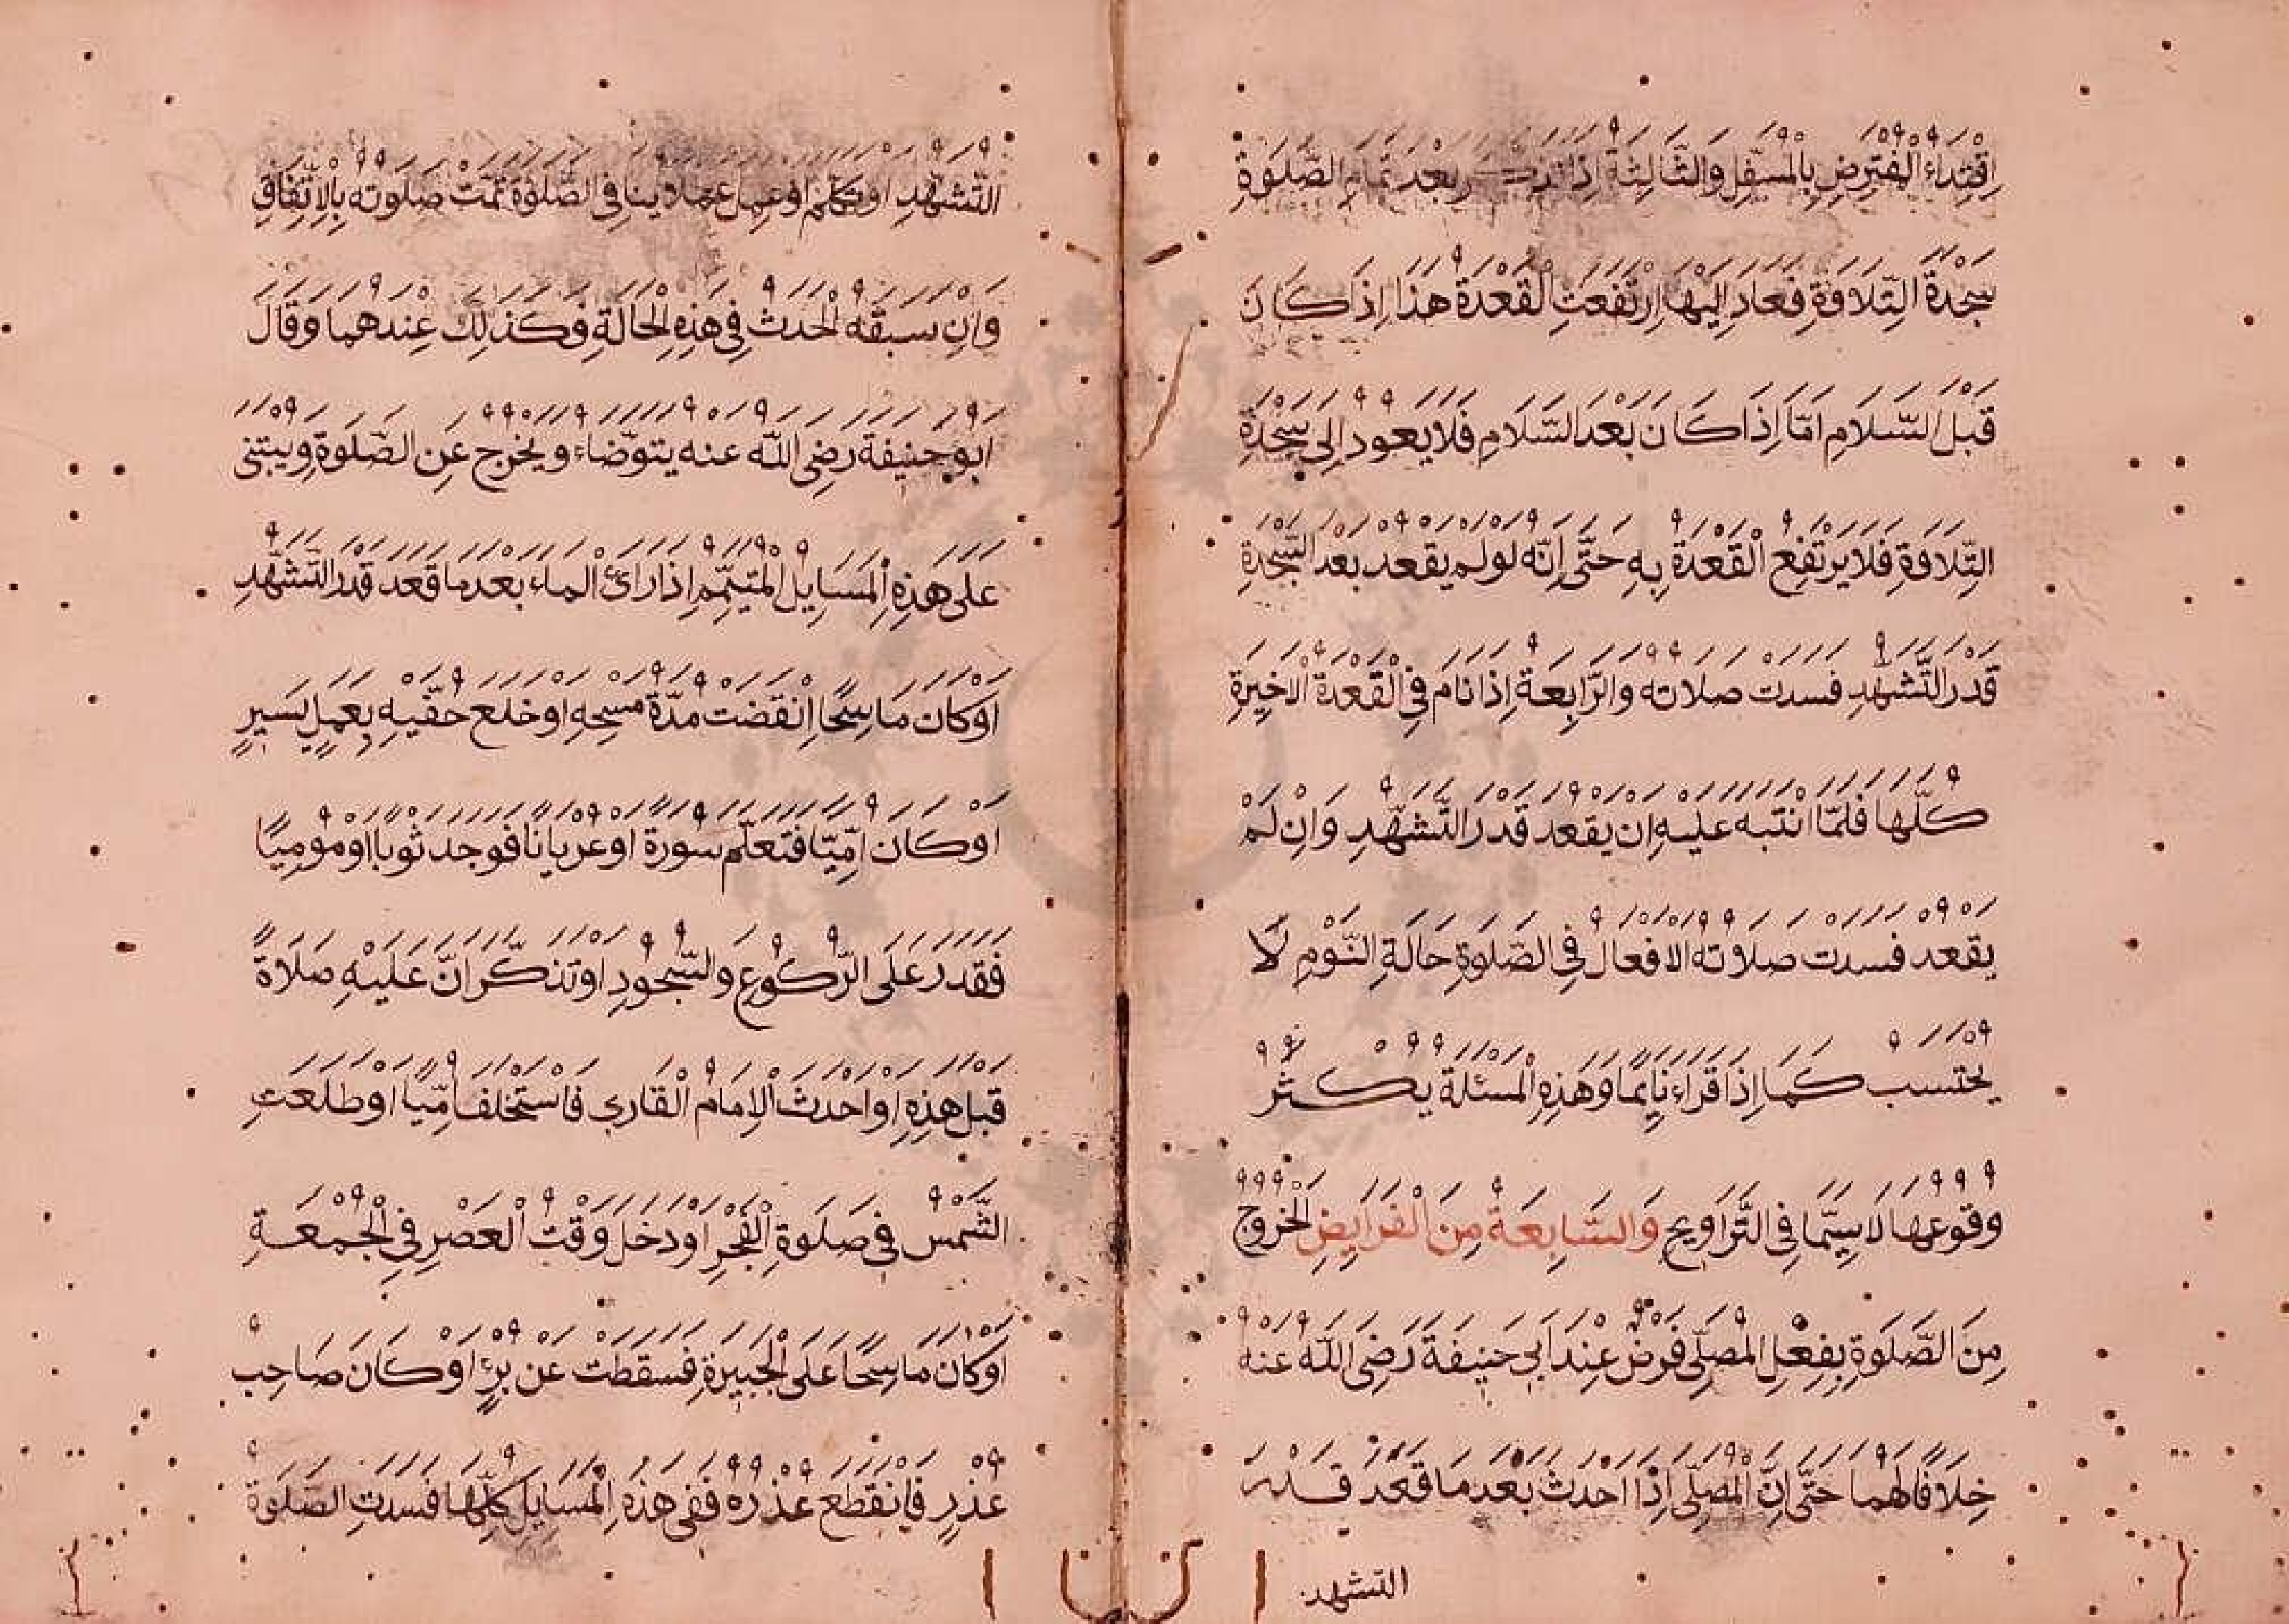 اِقْتِدَاءُ الْمُفْتَرِضِ بِالْمُتَنَفِّلِ وَالثَّالِثَةُ اِذَا تذكر بَعْدَ تَمَامِ الصَّلٰوةِ
سَجْدَةَ التِّلَاوَةِ فَعَادَ اِلَيْهَا اِرْتَفَعَتِ الْقَعْدَةُ هَذَا اِذَا كَانَ
قَبْلَ السَّلَامِ اَمَّا اِذَا كَانَ بَعْدَ السَّلَامِ فَلَا يَعُودُ اِلَى سَجْدَةِ
التِّلَاوَةِ فَلَا يَرْتَفِعُ الْقَعْدَةُ بِهِ حَتَّى اِنَّهُ لَوْ لَمْ يَقْعُدْ بَعْدَ السَّجْدَةِ
قَدْرَ التَّشَهُّدِ فَسَدَت صَلَاتُهُ وَالرَّابِعَةُ اِذَا نَامَ فِي الْقَعْدَةِ الْاَخِيرَةِ
كُلِّهَا فَلَمَّا انْتَبَهَ عَلَيْهِ اَنْ يَقْعُدَ قَدْرَ التَّشَهُّدِ وَاِنْ لَمْ
يَقْعُدْ فَسَدَتْ صَلَاتُهُ الافعال فِي الصَّلَوةِ حَالَةَ النَّوْمِ لَا
يحتسب كَمَا اِذَا قَرَاءَ نَايِمًا وَهَذِهِ الْمَسْئَلَةُ يَكْثُرُ
وُقُوعُهَا لَا سِيَّمَا فِي التَّرَاوِيحِ وَالسَّابِعَةُ مِنَ الْفَرَايِضِ الْخُرُوجُ
مِنَ الصَّلَوةِ بِفِعْلِ الْمُصَلِّي فَرْضٌ عِنْدَ اَبِي حَنِيفَةَ رَضِيَ اللّٰهُ عَنْهُ
خِلَافًا لَهُمَا حَتَّى اِنَّ الْمُصَلِّي اِذَا اَحْدَثَ بَعْدَ مَا قَعَدَ قَدْرَ
التشهد
التَّشَهُّدِ اَوْ تَكَلَّمَ اَوْ عَمِلَ عَمَلًا ينا في الصَّلٰوةَ تَمَّتْ صَلٰوتُهُ بِالْاِتِّفَاقِ
وَاِنْ سَبَقَهُ الْحَدَثُ فِي هَذِهِ الْحَالَةِ فَكَذَلِكَ عِنْدَهُمَا وَقَالَ
اَبُو حَنِيفَةَ رَضِيَ اللّٰهُ عَنْهُ يَتَوَضَّاءُ وَيَخْرُجُ عَنِ الصَّلَوةِ وَيَبْتَنِي
عَلَى هَذِهِ الْمَسَايِلِ الْمُتَيَمِّمُ اِذَا رَاَىَ الْمَاءَ بَعْدَ مَا قَعَدَ قَدْرَ التَّشَهُّدِ
اَوْ كَانَ مَاسِحًا اِنْقَضَتْ مُدَّةُ مَسْحِهِ اَوْ خَلَعَ خُفَّيْهِ بِعَمَلٍ يَسِيرٍ
اَوْ كَانَ اُمِّيًّا فَتَعَلَّمَ سُورَةً اَوْ عُرْيَانًا فَوَجَدَ ثَوْبًا اَوْ مُومِيًا
فَقَدَرَ عَلَى الرُّكُوعِ وَالسُّجُودِ اَوْ تَذَكَّرَ اَنَّ عَلَيْهِ صَلَاةً
قَبْلَ هَذِهِ اَوْ اَحْدَثَ الْاِمَامُ الْقَارِي فَاسْتَخْلَفَ اُمِّيًّا اَوْ طَلَعَتِ
الشَّمْسُ فِي صَلَوةِ الْفَجْرِ اَوْ دَخَلَ وَقْتُ الْعَصْرِ فِي الْجُمْعَةِ
اَوْ كَانَ مَاسِحًا عَلَى الْجَبِيرَةِ فَسَقَطَتْ عَنْ بُرْءٍ اَوْ كَانَ صَاحِبَ
عُذْرٍ فَانْقَطَعَ عُذْرُهُ فَفِي هَذِهِ الْمَسَايِلِ كُلِّهَا فَسَدَتِ الصَّلَوةُ